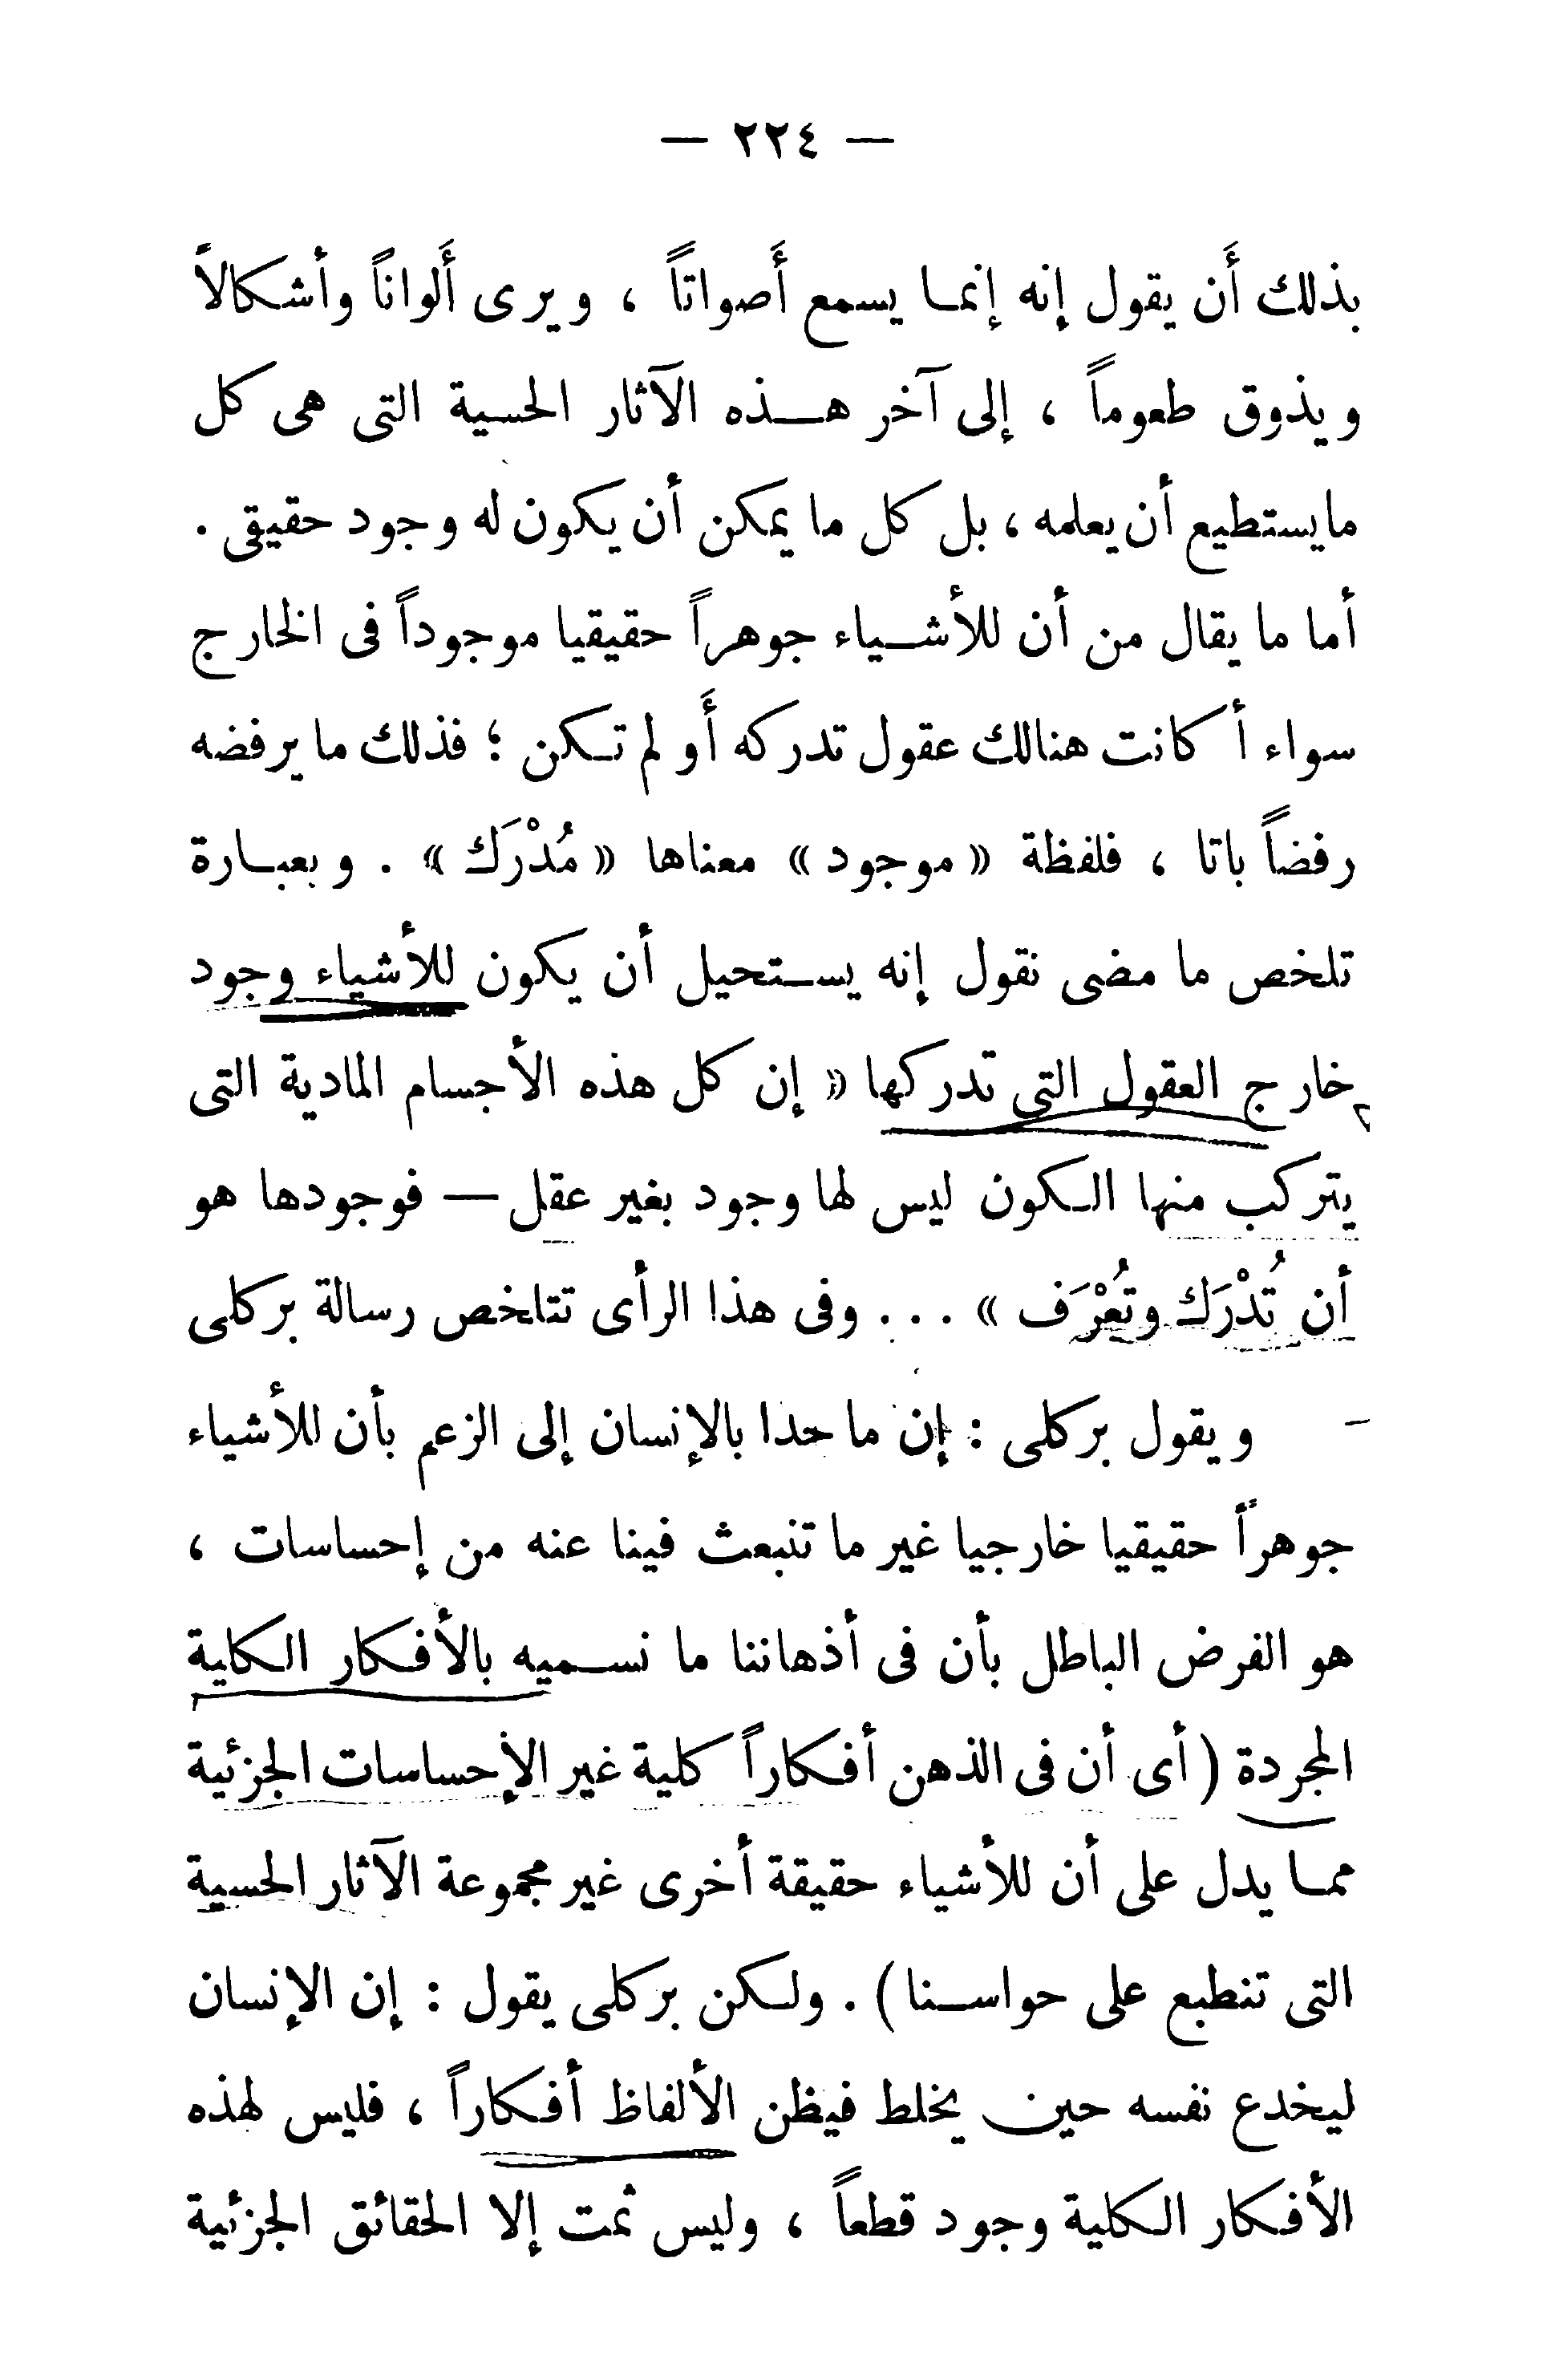 — ٢٢٤ —
بذلك أَن يقول إنه إنما يسمع أَصواتاً ، ويرى أَلواناً وأشكالاً
ويذوق طعوماً ، إلى آخر هذه الآثار الحسية التى هى كل
ما يستطيع أن يعلمه ، بل كل ما يمكن أن يكون له وجود حقيقى .
أما ما يقال من أن للأشياء جوهراً حقيقيا موجوداً فى الخارج
سواء أكانت هنالك عقول تدركه أَو لم تكن ؛ فذلك ما يرفضه
رفضاً باتا ، فلفظة « موجود » معناها « مُدْرَك » . وبعبارة
تلخص ما مضى نقول إنه يستحيل أن يكون للأشياء وجود
خارج العقول التى تدركها « إن كل هذه الأجسام المادية التى
يتركب منها الكون ليس لها وجود بغير عقل — فوجودها هو
أن تُدْرَك وتُعْرَف » . . . وفى هذا الرأى تتلخص رسالة بركلى
ويقول بركلى : إن ما حدا بالإنسان إلى الزعم بأن للأشياء
جوهراً حقيقيا خارجيا غير ما تنبعث فينا عنه من إحساسات ،
هو الفرض الباطل بأن فى أذهاننا ما نسميه بالأفكار الكلية
المجردة ( أى أن فى الذهن أفكاراً كلية غير الإحساسات الجزئية
مما يدل على أن للأشياء حقيقة أخرى غير مجموعة الآثار الحسية
التى تنطبع على حواسنا ) . ولكن بركلى يقول : إن الإنسان
ليخدع نفسه حين يخلط فيظن الألفاظ أفكاراً ، فليس لهذه
الأفكار الكلية وجود قطعاً ، وليس ثمت إلا الحقائق الجزئية